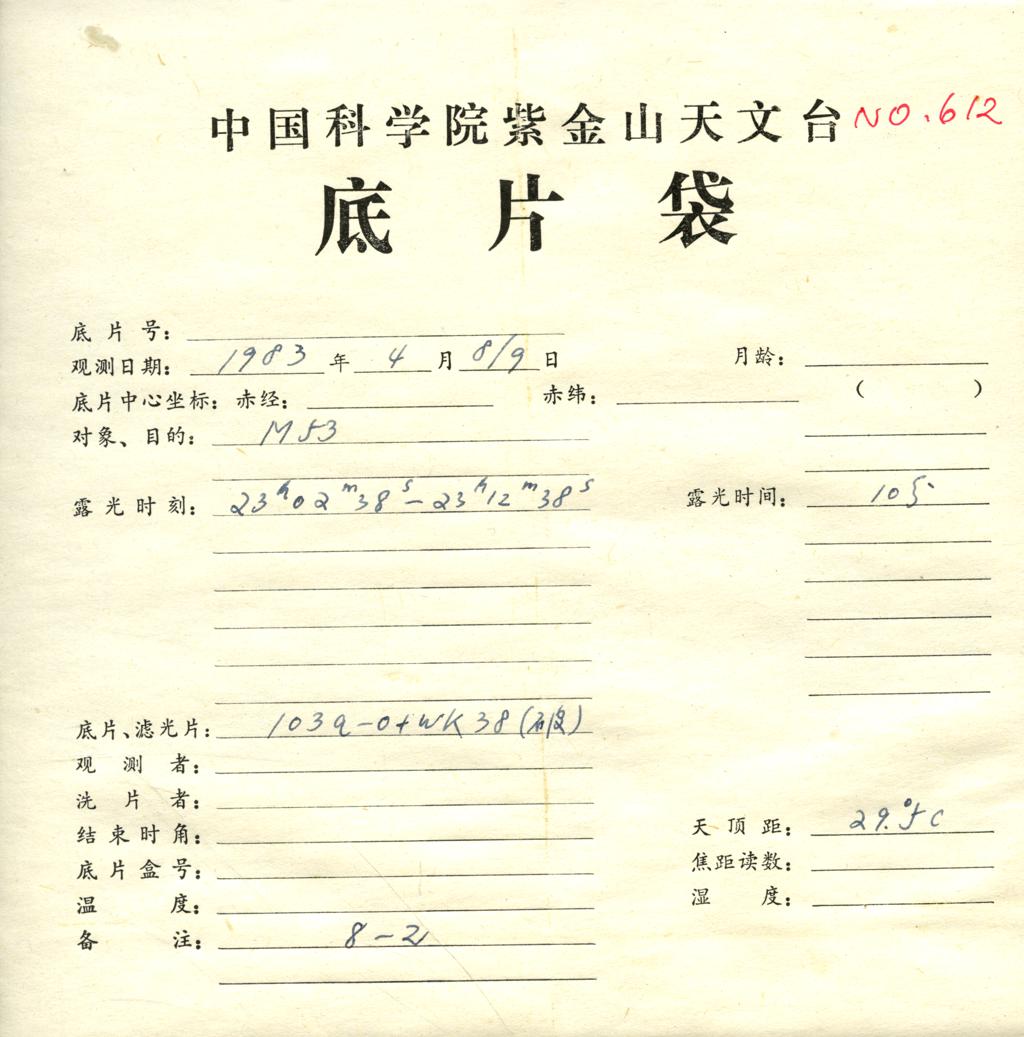 中国科学院紫金山天文台 NO.612
底片袋
底片号:
观测日期: 1983年4月8/9日 月龄:
底片中心坐标: 赤经: 赤纬: ( )
对象、目的: M53
露光时刻: 23h02m38s-23h12m38s 露光时间: 10
底片、滤光片: 103a-O+WK38
观测者:
洗片者:
结束时角: 天顶距: 29.°5C
底片盒号: 焦距读数:
温度: 湿度:
备注: 8-2